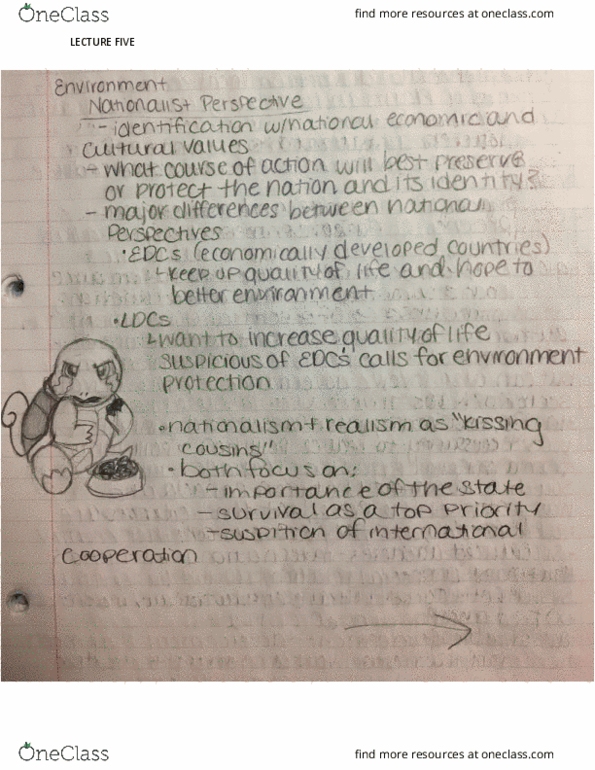 OneClass
find more resources at oneclass.com
LECTURE FIVE
Environment
Nationalist Perspective
- identification w/national economic and
cultural values
- what course of action will best preserve
or protect the nation and its identity?
- major differences between national
Perspectives
• EDCs (economically developed countries)
- keep up quality of life and hope to
better environment
• LDCs
↳ want to increase quality of life
suspicious of EDCs' calls for environment
protection
• nationalism + realism as "kissing
cousins"
• both focus on:
- importance of the state
- survival as a top priority
- suspition of international
cooperation
OneClass
find more resources at oneclass.com